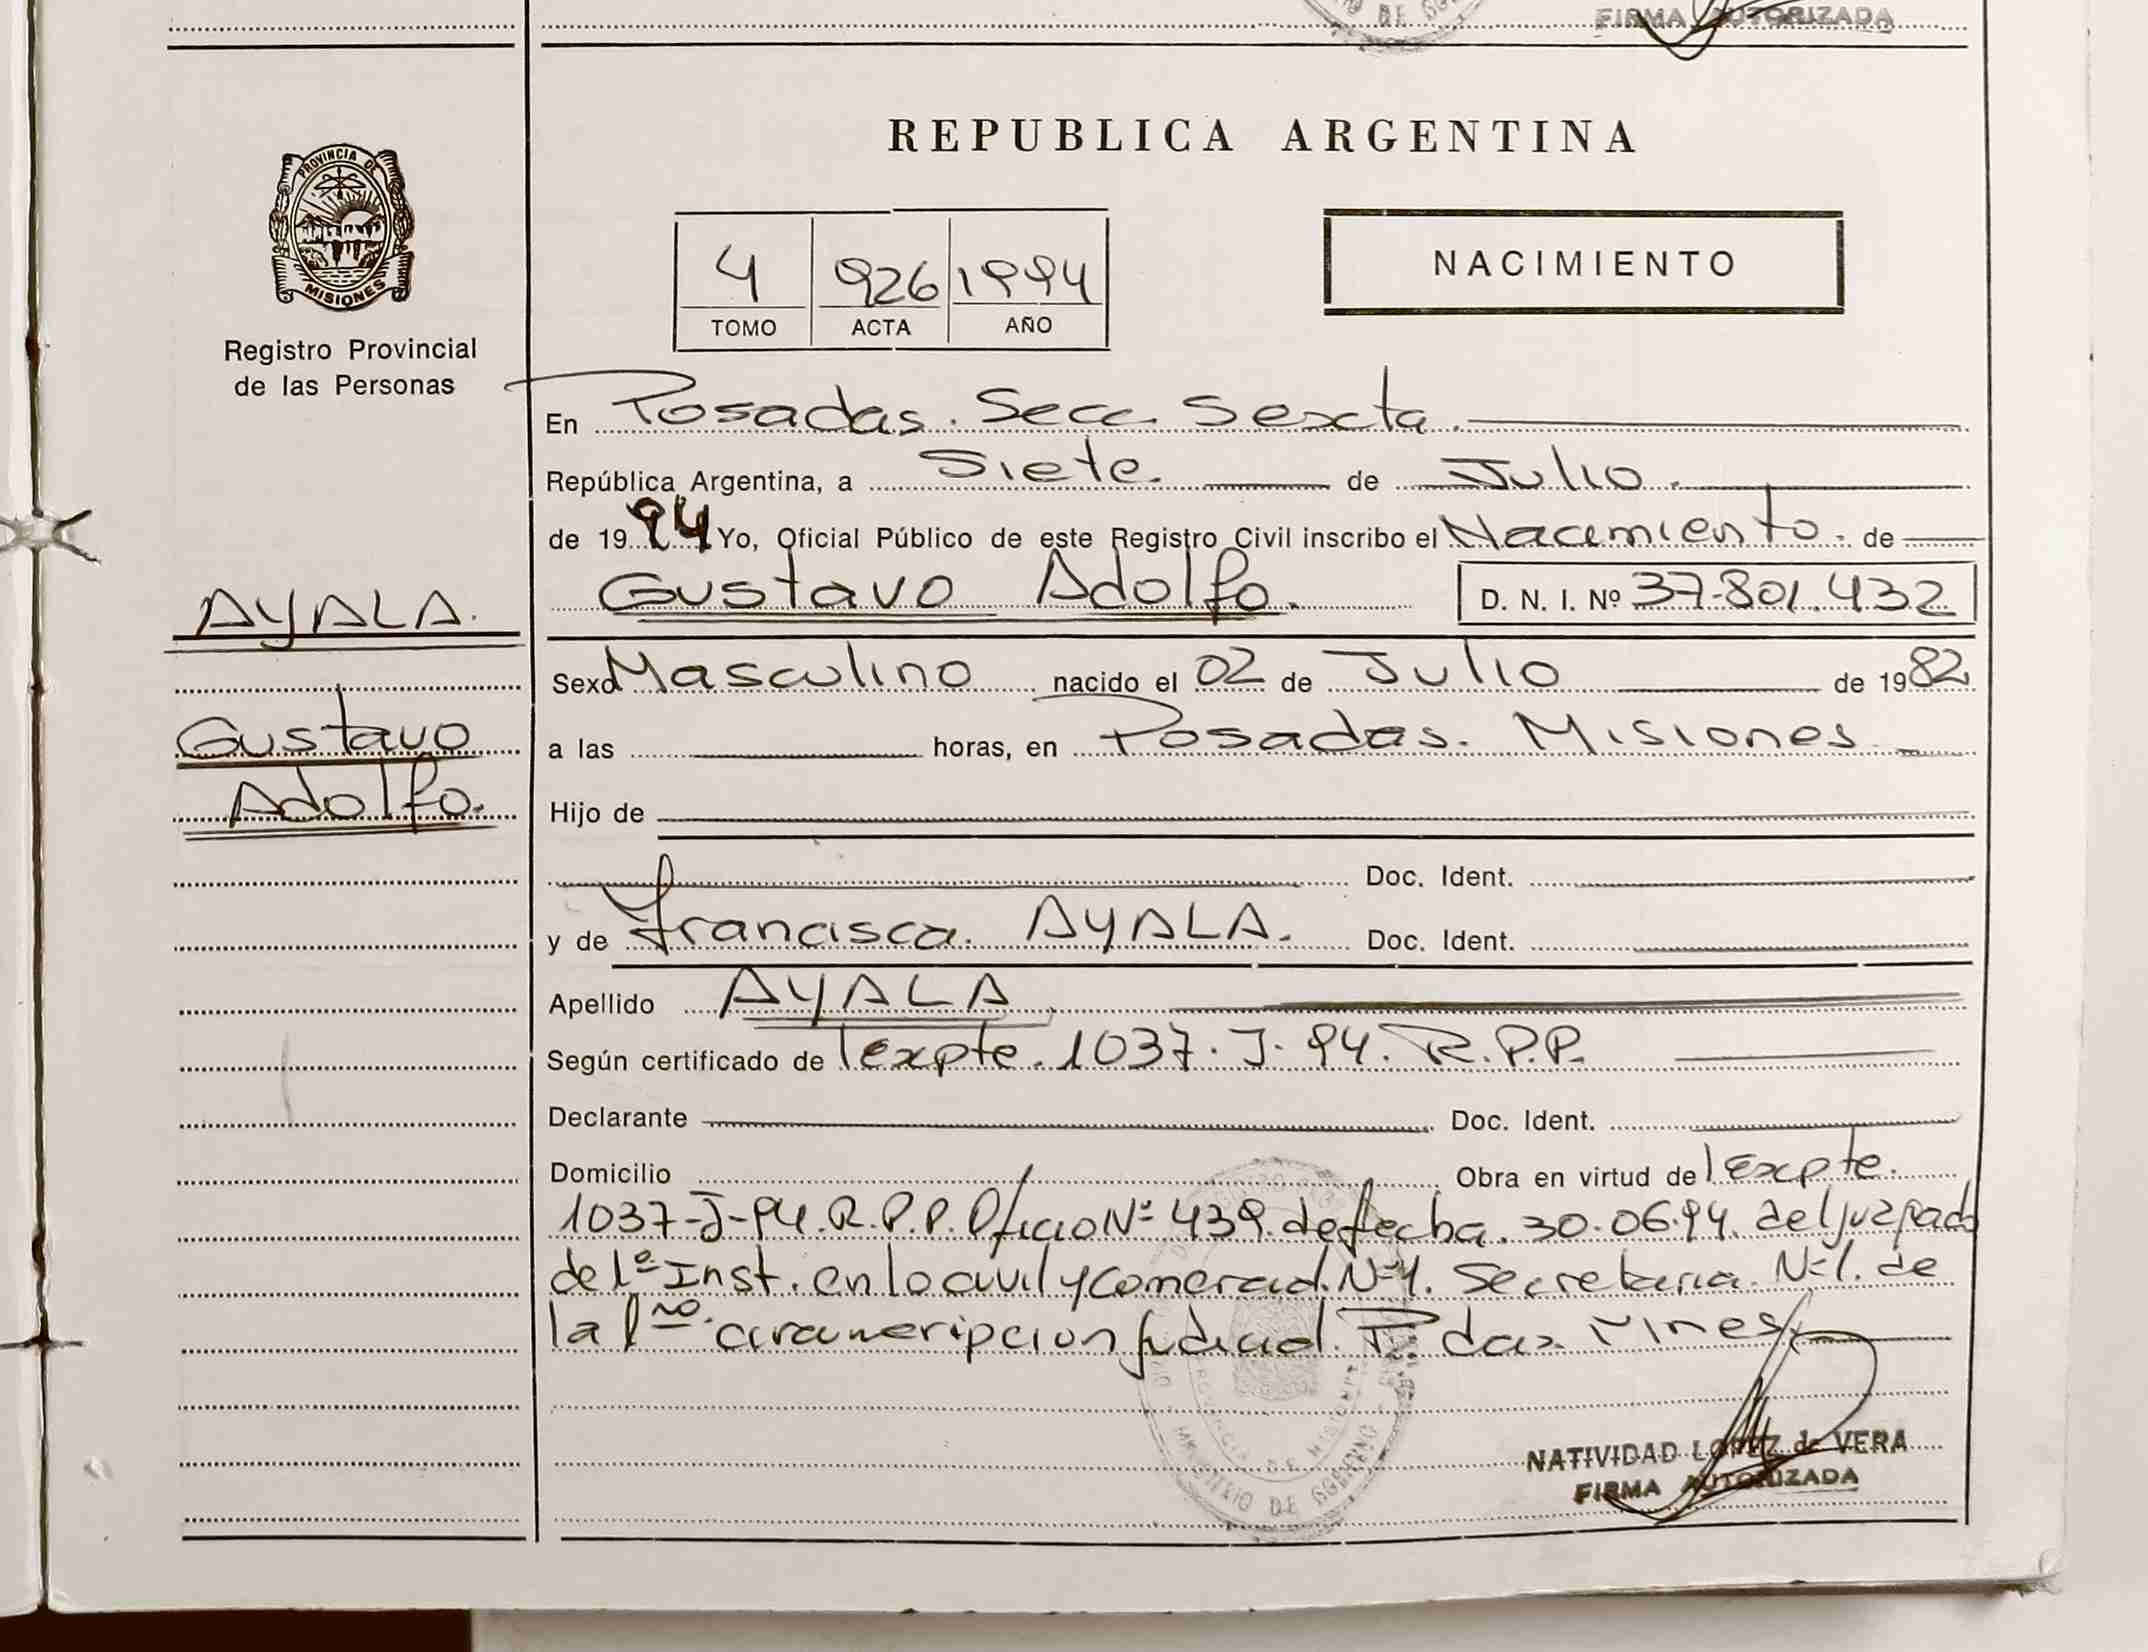 FIRMA AUTORIZADA
PROVINCIA DE
MISIONES
Registro Provincial
de las Personas
REPUBLICA ARGENTINA
4 926 1994
TOMO ACTA AÑO
NACIMIENTO
En Posadas. Secc. Sexta.
República Argentina, a Siete. de Julio.
de 1994 Yo, Oficial Público de este Registro Civil inscribo el Nacimiento. de
Gustavo Adolfo. D. N. I. Nº 37.801.432
AYALA.
Gustavo
Adolfo.
Sexo Masculino nacido el 02 de Julio de 1982
a las horas, en Posadas. Misiones
Hijo de
Doc. Ident.
y de Francisca. AYALA. Doc. Ident.
Apellido AYALA
Según certificado de Expte. 1037. J. 94. R.P.P.
Declarante Doc. Ident.
Domicilio Obra en virtud de Expte.
1037-J-94. R.P.P. Oficio Nº 439. de fecha. 30.06.94. del juzgado
de 1ª Inst. en lo civil y comercial. Nº 1. Secretaria. Nº 1. de
la 1ra. circunscripcion judicial. Pdas Mnes
MINISTERIO DE GOBIERNO
PROVINCIA DE MISIONES
NATIVIDAD LOPEZ de VERA
FIRMA AUTORIZADA